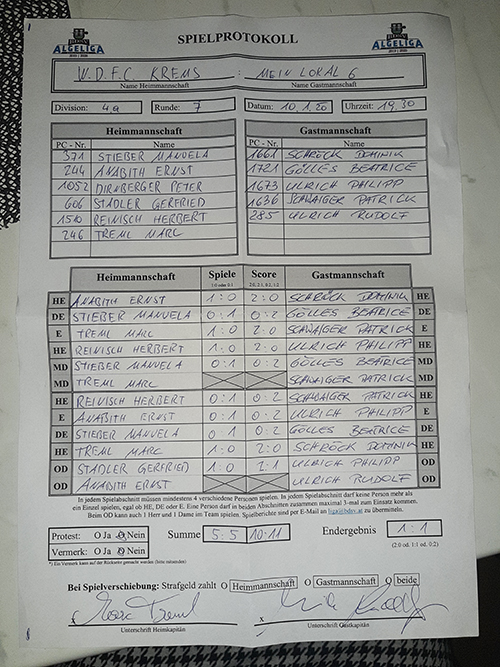 ALGELIGA
SPIELPROTOKOLL
ALGELIGA
W.D.F.C. KREMS : MEIN LOKAL 6
Name Heimmannschaft Name Gastmannschaft
Division: 4a Runde: 7 Datum: 10.1.20 Uhrzeit: 19.30
Heimmannschaft Gastmannschaft
PC - Nr. Name PC - Nr. Name
371 STIEBER MANUELA 1661 SCHRÖCK DOMINIK
244 ANABITH ERNST 1721 GÖLLES BEATRICE
1052 DIRNBERGER PETER 1673 ULRICH PHILIPP
606 STADLER GERFRIED 1636 SCHWAIGER PATRICK
1510 REINISCH HERBERT 285 ULRICH RUDOLF
246 TREML MARC
Heimmannschaft Spiele Score Gastmannschaft
1:0 oder 0:1 2:0, 2:1, 0:2, 1:2
HE ANABITH ERNST 1:0 2:0 SCHRÖCK DOMINIK HE
DE STIEBER MANUELA 0:1 0:2 GÖLLES BEATRICE DE
E TREML MARC 1:0 2:0 SCHWAIGER PATRICK E
HE REINISCH HERBERT 1:0 2:0 ULRICH PHILIPP HE
MD STIEBER MANUELA 0:1 0:2 GÖLLES BEATRICE MD
MD TREML MARC SCHWAIGER PATRICK MD
HE REINISCH HERBERT 0:1 0:2 SCHWAIGER PATRICK HE
E ANABITH ERNST 0:1 0:2 ULRICH PHILIPP E
DE STIEBER MANUELA 0:1 0:2 GÖLLES BEATRICE DE
HE TREML MARC 1:0 2:0 SCHRÖCK DOMINIK HE
OD STADLER GERFRIED 1:0 2:1 ULRICH PHILIPP OD
OD ANABITH ERNST ULRICH RUDOLF OD
In jedem Spielabschnitt müssen mindestens 4 verschiedene Personen spielen. In jedem Spielabschnitt darf keine Person mehr als
ein Einzel spielen, egal ob HE, DE oder E. Eine Person darf in beiden Abschnitten zusammen maximal 3-mal zum Einsatz kommen.
Beim OD kann auch 1 Herr und 1 Dame im Team spielen. Spielberichte sind per E-Mail an liga@bdsv.at zu übermitteln.
Protest: O Ja O Nein Summe 5:5 10:11 Endergebnis 1:1
Vermerk: O Ja O Nein (2:0 od. 1:1 od. 0:2)
*) Ein Vermerk kann auf der Rückseite gemacht werden (bitte ankreuzen)
Bei Spielverschiebung: Strafgeld zahlt O Heimmannschaft O Gastmannschaft O beide
x x
Unterschrift Heimkapitän Unterschrift Gastkapitän